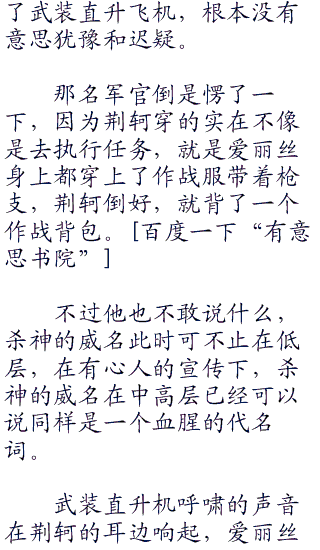 了武装直升飞机，根本没有
意思犹豫和迟疑。
那名军官倒是愣了一
下，因为荆轲穿的实在不像
是去执行任务，就是爱丽丝
身上都穿上了作战服带着枪
支，荆轲倒好，就背了一个
作战背包。[百度一下“有意
思书院”]
不过他也不敢说什么，
杀神的威名此时可不止在低
层，在有心人的宣传下，杀
神的威名在中高层已经可以
说同样是一个血腥的代名
词。
武装直升机呼啸的声音
在荆轲的耳边响起，爱丽丝